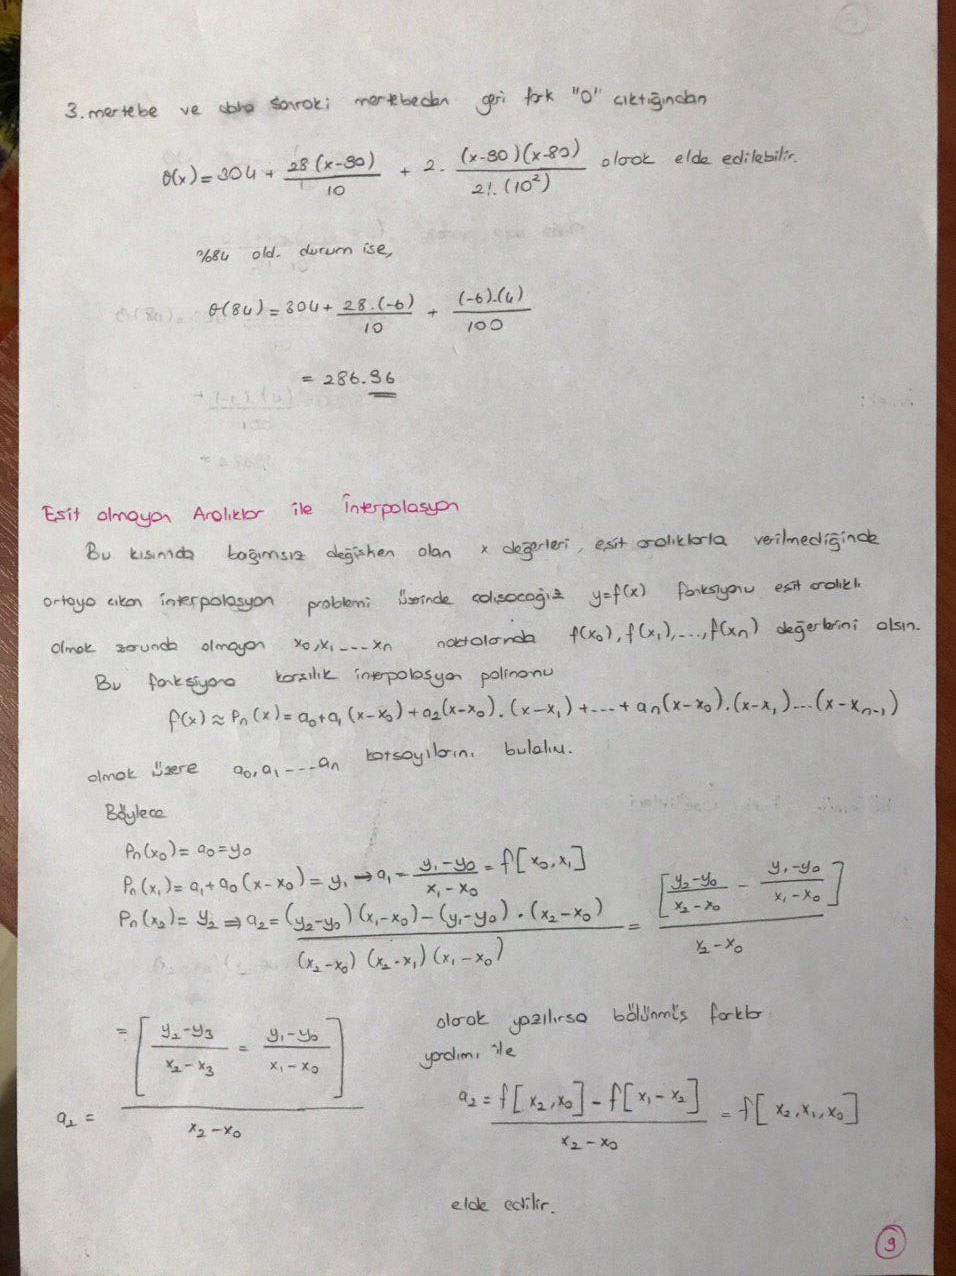 3. mertebe ve daha sonraki mertebeden geri fark "0" çıktığından
θ(x) = 304 + 28(x-90)/10 + 2. (x-90)(x-80)/2!.(10²) olarak elde edilebilir.
%84 old. durum ise,
θ(84) = 304 + 28.(-6)/10 + (-6).(4)/100
= 286.96
Eşit olmayan Aralıklar ile İnterpolasyon
Bu kısımda bağımsız değişken olan x değerleri, eşit aralıklarla verilmediğinde
ortaya çıkan interpolasyon problemi üzerinde çalışacağız y=f(x) fonksiyonu eşit aralıklı
olmak zorunda olmayan x₀,x₁....xn noktalarında f(x₀), f(x₁),...,f(xn) değerlerini alsın.
Bu fonksiyona karşılık interpolasyon polinonu
f(x) ≈ Pn(x) = a₀+a₁(x-x₀)+a₂(x-x₀).(x-x₁)+....+an(x-x₀).(x-x₁)...(x-xn-₁)
olmak üzere a₀,a₁....an katsayılarını bulalım.
Böylece
Pn(x₀) = a₀ = y₀
Pn(x₁) = a₁+a₀(x-x₀) = y₁ → a₁ = y₁-y₀/x₁-x₀ = f[x₀,x₁]
Pn(x₂) = y₂ ⇒ a₂ = (y₂-y₀)(x₁-x₀)-(y₁-y₀).(x₂-x₀)/(x₂-x₀)(x₂-x₁)(x₁-x₀) = [y₂-y₀/x₂-x₀ - y₁-y₀/x₁-x₀]/x₂-x₀
a₂ = = [y₂-y₃/x₂-x₃ = y₁-y₀/x₁-x₀]/x₂-x₀
olarak yazılırsa bölünmüş farklar
yardımı ile
a₂ = f[x₂,x₀]-f[x₁-x₂]/x₂-x₀ = f[x₂,x₁,x₀]
elde edilir.
9